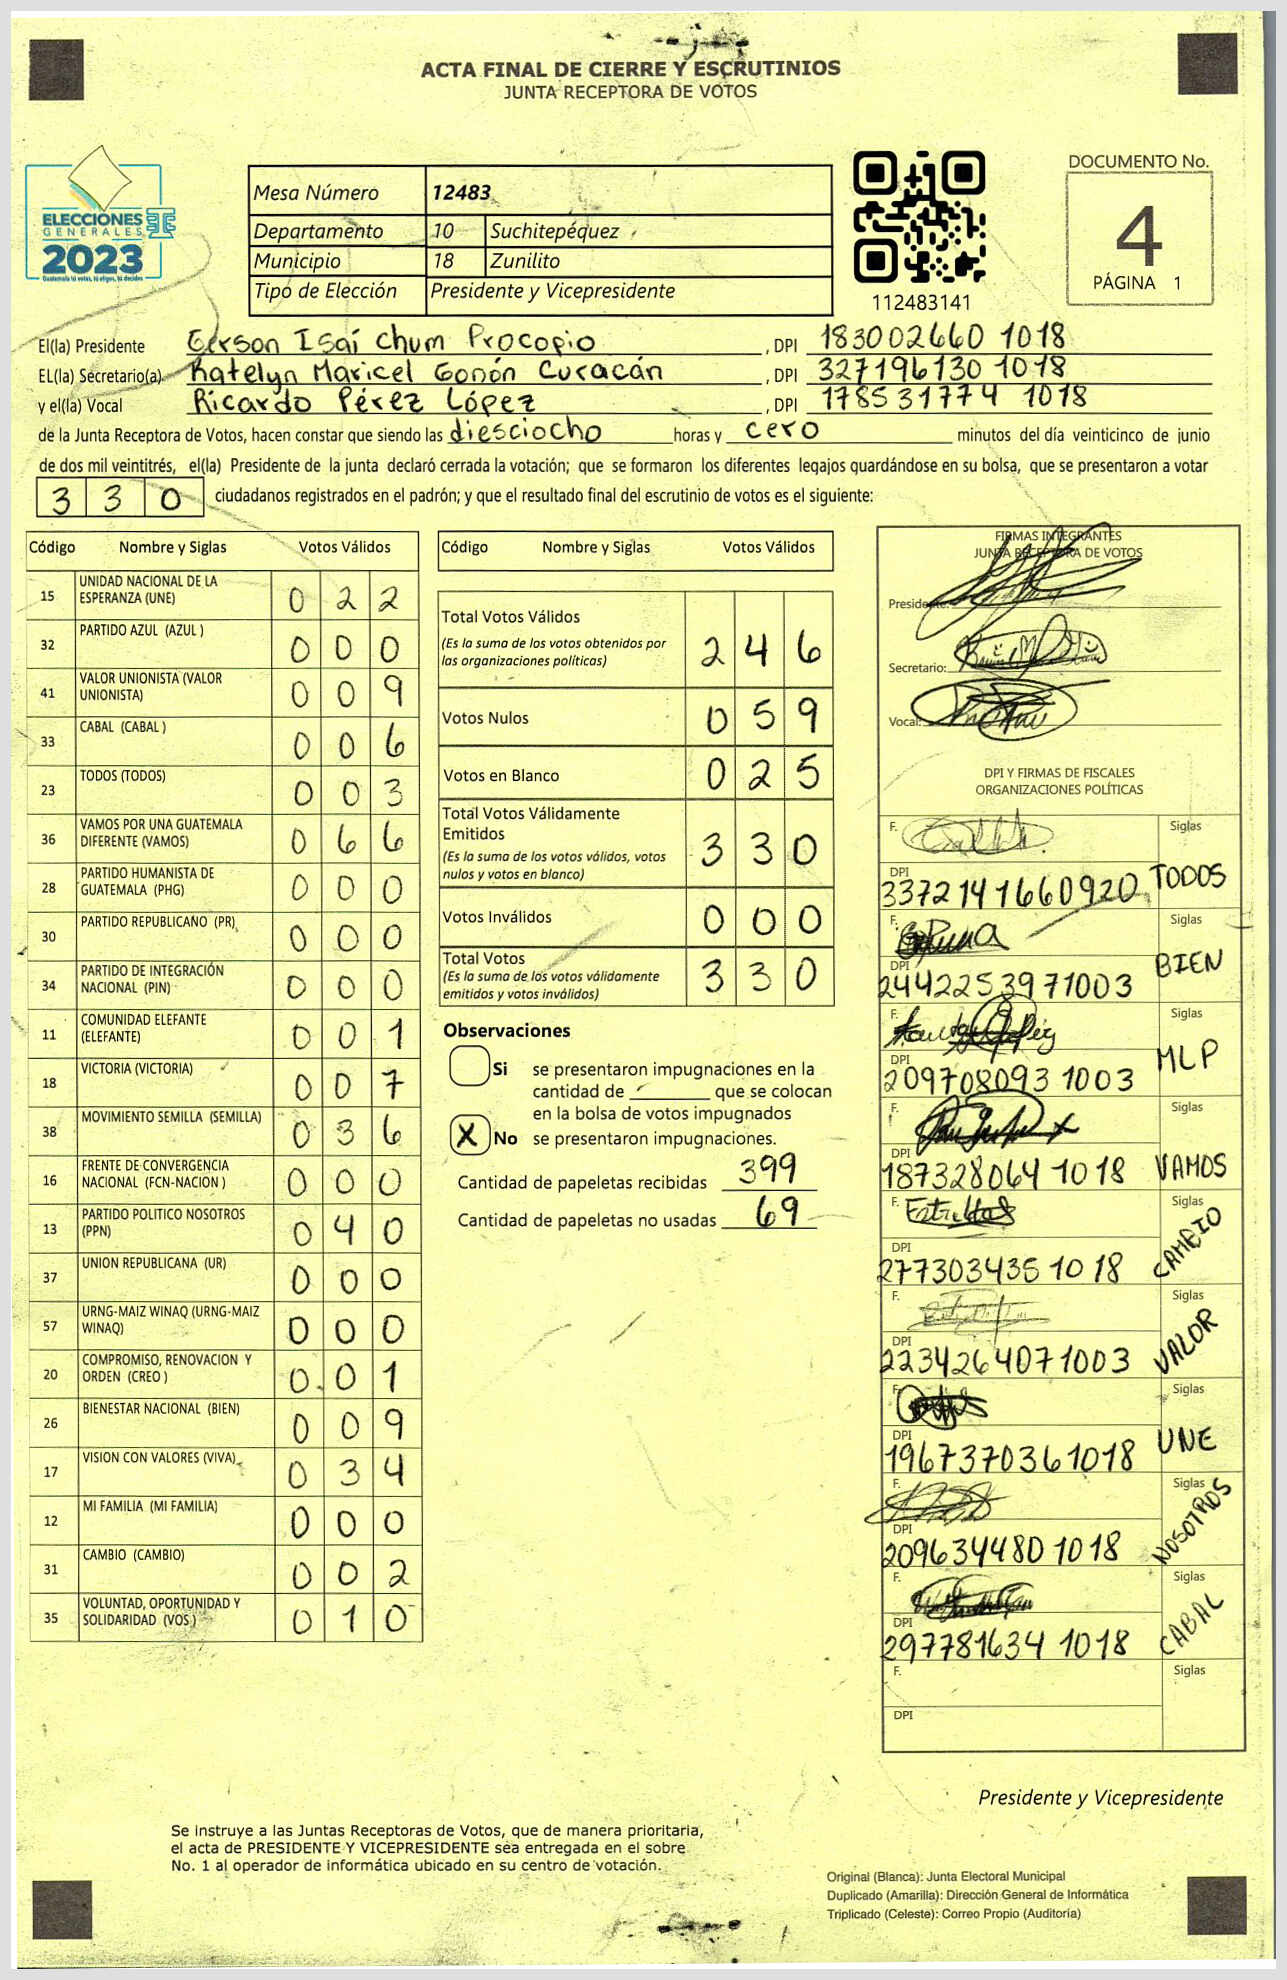 ACTA FINAL DE CIERRE Y ESCRUTINIOS
JUNTA RECEPTORA DE VOTOS
ELECCIONES
GENERALES
2023
Guatemala tú votas, tú eliges, tú decides
Mesa Número 12483
Departamento 10 Suchitepéquez
Municipio 18 Zunilito
Tipo de Elección Presidente y Vicepresidente
112483141
DOCUMENTO No.
4
PÁGINA 1
El(la) Presidente Gerson Isaí Chum Procopio, DPI 183002660 1018
EL(la) Secretario(a) Katelyn Maricel Gonón Curacán, DPI 327196130 1018
y el(la) Vocal Ricardo Pérez López, DPI 178531774 1018
de la Junta Receptora de Votos, hacen constar que siendo las diesciocho horas y cero minutos del día veinticinco de junio
de dos mil veintitrés, el(la) Presidente de la junta declaró cerrada la votación; que se formaron los diferentes legajos guardándose en su bolsa, que se presentaron a votar
330 ciudadanos registrados en el padrón; y que el resultado final del escrutinio de votos es el siguiente:
Código Nombre y Siglas Votos Válidos
15 UNIDAD NACIONAL DE LA ESPERANZA (UNE) 022
32 PARTIDO AZUL (AZUL ) 000
41 VALOR UNIONISTA (VALOR UNIONISTA) 009
33 CABAL (CABAL ) 006
23 TODOS (TODOS) 003
36 VAMOS POR UNA GUATEMALA DIFERENTE (VAMOS) 066
28 PARTIDO HUMANISTA DE GUATEMALA (PHG) 000
30 PARTIDO REPUBLICANO (PR) 000
34 PARTIDO DE INTEGRACIÓN NACIONAL (PIN) 000
11 COMUNIDAD ELEFANTE (ELEFANTE) 001
18 VICTORIA (VICTORIA) 007
38 MOVIMIENTO SEMILLA (SEMILLA) 036
16 FRENTE DE CONVERGENCIA NACIONAL (FCN-NACION ) 000
13 PARTIDO POLITICO NOSOTROS (PPN) 040
37 UNION REPUBLICANA (UR) 000
57 URNG-MAIZ WINAQ (URNG-MAIZ WINAQ) 000
20 COMPROMISO, RENOVACION Y ORDEN (CREO ) 001
26 BIENESTAR NACIONAL (BIEN) 009
17 VISION CON VALORES (VIVA) 034
12 MI FAMILIA (MI FAMILIA) 000
31 CAMBIO (CAMBIO) 002
35 VOLUNTAD, OPORTUNIDAD Y SOLIDARIDAD (VOS ) 010
Código Nombre y Siglas Votos Válidos
Total Votos Válidos
(Es la suma de los votos obtenidos por las organizaciones políticas) 246
Votos Nulos 059
Votos en Blanco 025
Total Votos Válidamente Emitidos
(Es la suma de los votos válidos, votos nulos y votos en blanco) 330
Votos Inválidos 000
Total Votos
(Es la suma de los votos válidamente emitidos y votos inválidos) 330
Observaciones
Si se presentaron impugnaciones en la
cantidad de que se colocan
en la bolsa de votos impugnados
X No se presentaron impugnaciones.
Cantidad de papeletas recibidas 399
Cantidad de papeletas no usadas 69
FIRMAS INTEGRANTES
JUNTA RECEPTORA DE VOTOS
Presidente:
Secretario:
Vocal:
DPI Y FIRMAS DE FISCALES
ORGANIZACIONES POLÍTICAS
F. Siglas
DPI 3372141660920 TODOS
F. Siglas
DPI 2442253971003 BIEN
F. Siglas
DPI 209708093 1003 MLP
F. Siglas
DPI 187328064 1018 VAMOS
F. Siglas
DPI 277303435 1018 CAMBIO
F. Siglas
DPI 2234264071003 VALOR
F. Siglas
DPI 1967370361018 UNE
F. Siglas
DPI 209634480 1018 NOSOTROS
F. Siglas
DPI 297781634 1018 CABAL
F. Siglas
DPI
Presidente y Vicepresidente
Se instruye a las Juntas Receptoras de Votos, que de manera prioritaria,
el acta de PRESIDENTE Y VICEPRESIDENTE sea entregada en el sobre
No. 1 al operador de informática ubicado en su centro de votación.
Original (Blanca): Junta Electoral Municipal
Duplicado (Amarilla): Dirección General de Informática
Triplicado (Celeste): Correo Propio (Auditoría)